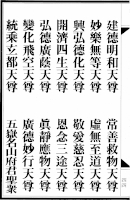 建德明和天尊　常善救物天尊
妙樂無等天尊　虛無至道天尊
興弘德化天尊　敬愛慈忍天尊
開濟四生天尊　恩念三途天尊
弘德廣蔭天尊　真靜應物天尊
變化飛空天尊　廣德妙行天尊
統乘玄都天尊　五嶽名山府君聖眾